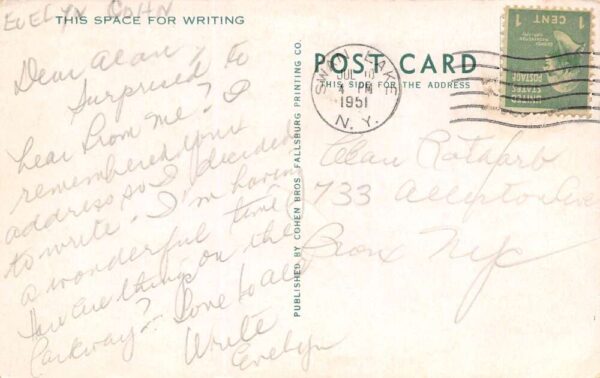 EVELYN COHN
THIS SPACE FOR WRITING
Dear Alan,
Surprised to
hear from me? I
remembered your
address so I decided
to write. I'm having
a wonderful time.
How are things on the
Parkway? Love to all
Write
Evelyn
PUBLISHED BY COHEN BROS. FALLSBURG PRINTING CO.
POST CARD
THIS SIDE FOR THE ADDRESS
SWAN LAKE
JUL
4 PM
1951
N. Y.
1 CENT 1
UNITED
STATES
POSTAGE
Alan Rothfarb
733 Allerton Ave
Bronx NYC